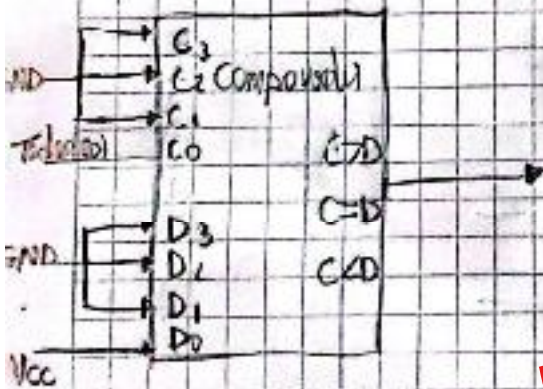 C3
GND C2 Comparador
C1
C0 C>D
C=D
D3
GND D2 C<D
D1
D0
Vcc